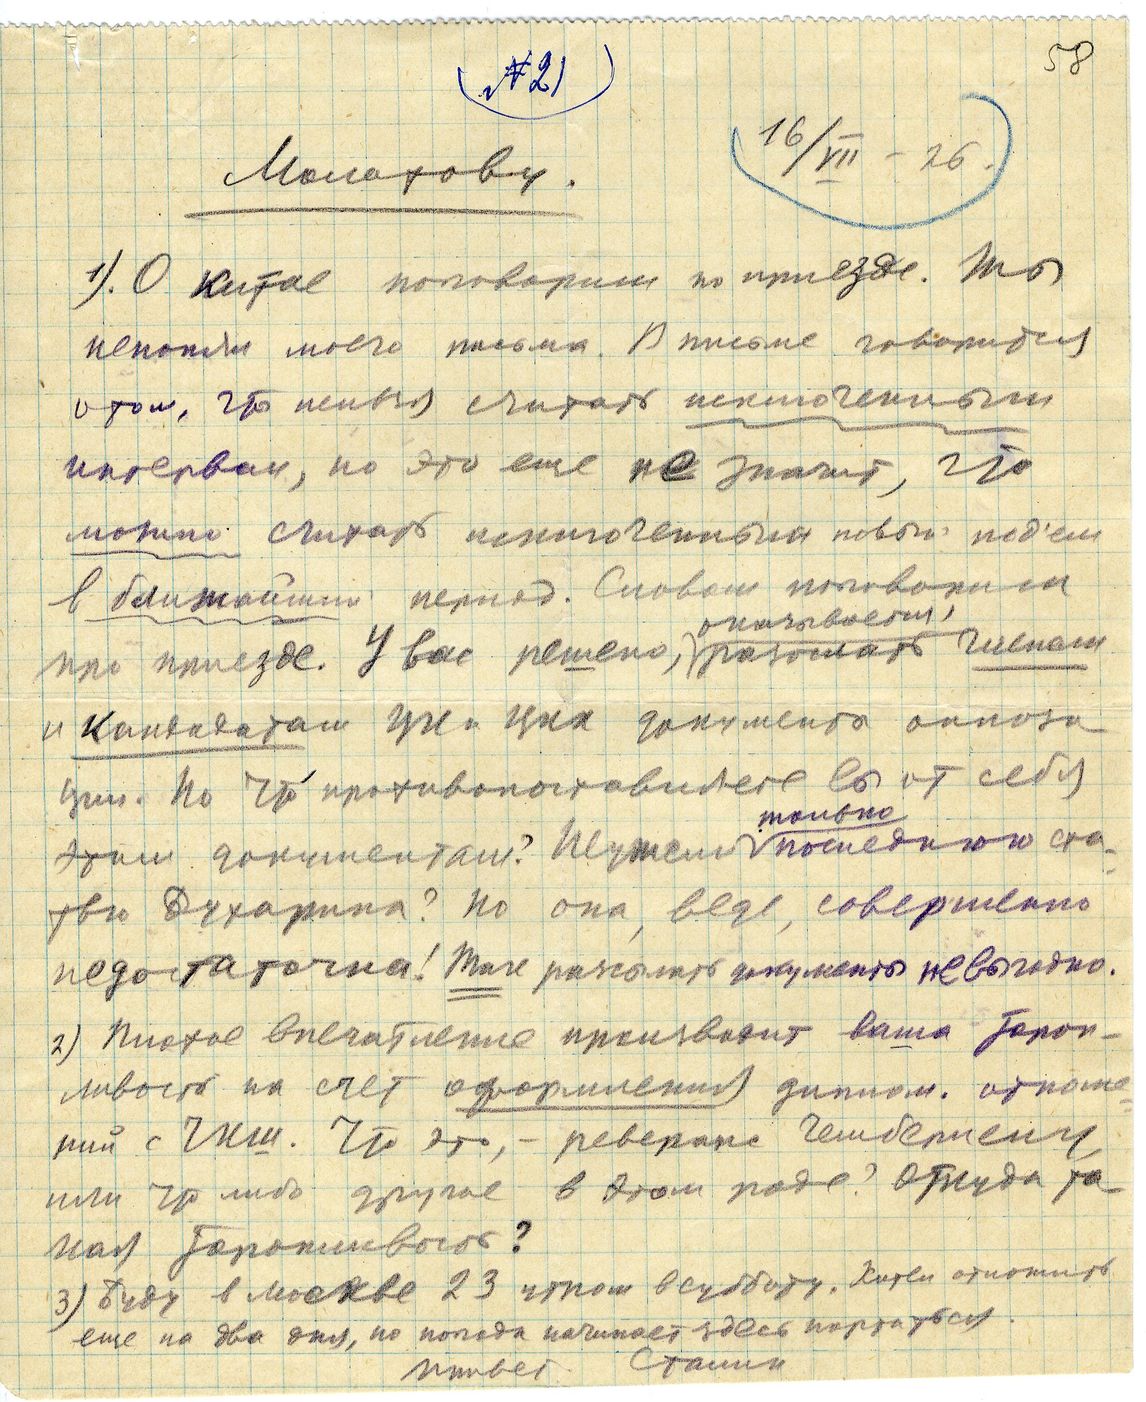 58
(№2)
16/VII – 26.
Молотову.
1). О Китае поговорим по приезде. Ты
непонял моего письма. В письме говорится
о том, что нельзя считать исключенным
интервал, но это еще не значит, что
можно считать исключенным новый под'ем
в ближайший период. Словом поговорим
про приезде. У вас решено,
оказывается,
разослать членам
и кандидатам ЦК и ЦКК документы оппози
ции. Но что противопоставляете вы от себя
этим документам? Неужели
только
последнюю ста-
тью Бухарина? Но она, ведь, совершенно
недостаточна! Так рассылать документы невыгодно.
2) Плохое впечатление производит ваша тороп-
ливость на счет оформления диплом. отноше-
ний с Чкш. Что это, – реверанс Чемберлену
или что либо другое в этом роде? Откуда та-
кая торопливость?
3) Буду в Москве 23 утром в субботу. Хотел отложить
еще на два дня, но погода начинает здесь портиться.
Привет. Сталин